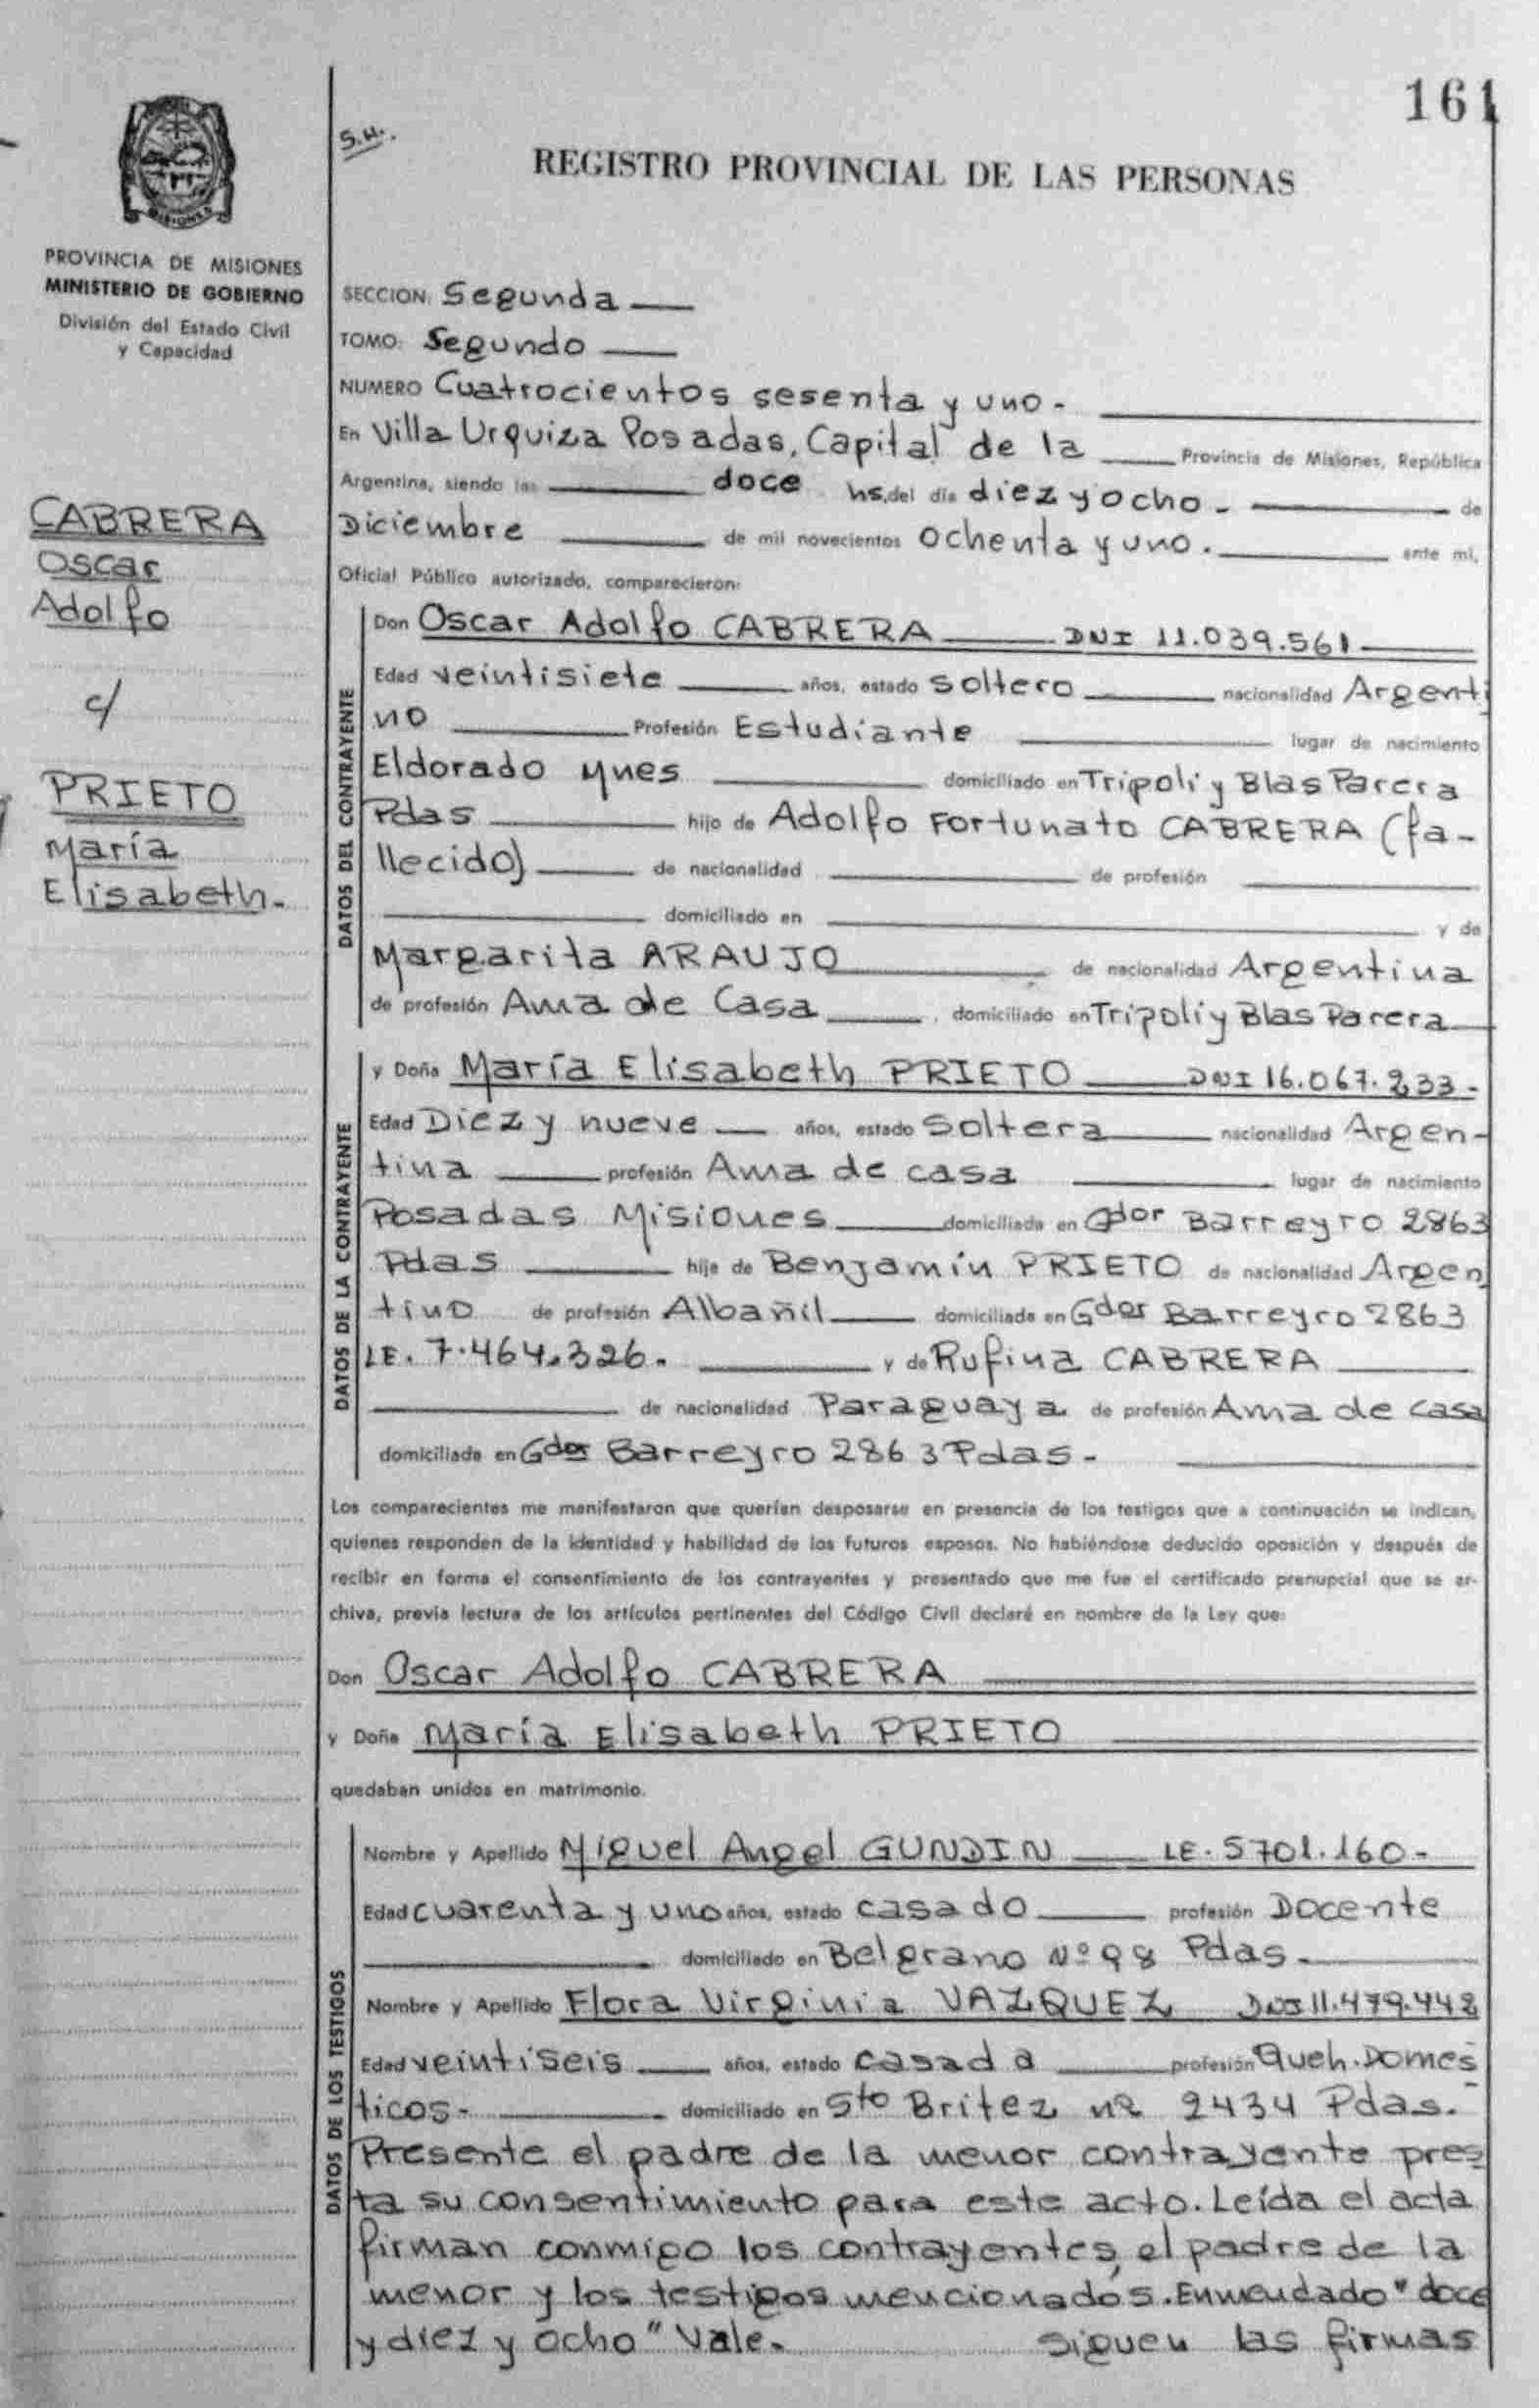 161
S.H.
REGISTRO PROVINCIAL DE LAS PERSONAS
MISIONES
PROVINCIA DE MISIONES
MINISTERIO DE GOBIERNO
División del Estado Civil
y Capacidad
CABRERA
Oscar
Adolfo
c/
PRIETO
María
Elisabeth.
SECCION: Segunda
TOMO: Segundo
NUMERO Cuatrocientos sesenta y uno.
En Villa Urquiza Posadas, Capital de la Provincia de Misiones, República
Argentina, siendo las doce hs. del día diez y ocho. de
Diciembre de mil novecientos ochenta y uno. ante mí,
Oficial Público autorizado, comparecieron:
DATOS DEL CONTRAYENTE
Don Oscar Adolfo CABRERA DNI 11.039.561
Edad veintisiete años, estado soltero nacionalidad Argenti
no Profesión Estudiante lugar de nacimiento
Eldorado Mnes domiciliado en Tripoli y Blas Parera
Pdas hijo de Adolfo Fortunato CABRERA (fa-
llecido) de nacionalidad de profesión
domiciliado en y de
Margarita ARAUJO de nacionalidad Argentina
de profesión Ama de Casa, domiciliado en Tripoli y Blas Parera
DATOS DE LA CONTRAYENTE
y Doña María Elisabeth PRIETO DNI 16.067.233.
Edad Diez y nueve años, estado Soltera nacionalidad Argen-
tina profesión Ama de casa lugar de nacimiento
Posadas Misiones domiciliada en Gdor Barreyro 2863
Pdas hija de Benjamín PRIETO de nacionalidad Argen
tino de profesión Albañil domiciliado en Gdor Barreyro 2863
LE. 7.464.326. y de Rufina CABRERA
de nacionalidad Paraguaya de profesión Ama de casa
domiciliada en Gdor Barreyro 2863 Pdas-
Los comparecientes me manifestaron que querían desposarse en presencia de los testigos que a continuación se indican,
quienes responden de la identidad y habilidad de los futuros esposos. No habiéndose deducido oposición y después de
recibir en forma el consentimiento de los contrayentes y presentado que me fue el certificado prenupcial que se ar-
chiva, previa lectura de los artículos pertinentes del Código Civil declaré en nombre de la Ley que:
Don Oscar Adolfo CABRERA
y Doña María Elisabeth PRIETO
quedaban unidos en matrimonio.
DATOS DE LOS TESTIGOS
Nombre y Apellido Miguel Angel GUNDIN LE. 5701.160-
Edad cuarenta y uno años, estado casado profesión Docente
domiciliado en Belgrano Nº 98 Pdas.
Nombre y Apellido Flora Virginia VAZQUEZ DNI 11.479.442
Edad veintiseis años, estado casada profesión Queh. Domes
ticos- domiciliado en Sto Britez nº 2434 Pdas.
Presente el padre de la menor contrayente pres
ta su consentimiento para este acto. Leída el acta
firman conmigo los contrayentes, el padre de la
menor y los testigos mencionados. Enmendado "doce
y diez y ocho" Vale. Siguen las firmas